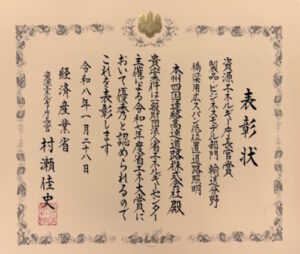 表彰状
資源エネルギー庁長官賞
製品・ビジネスモデル部門 輸送分野
橋梁用広スパン低位置道路照明
本州四国連絡高速道路株式会社殿
貴案件は一般財団法人省エネルギーセンター
主催による令和七年度省エネ大賞に
おいて優秀と認められるので
これを表彰します
令和八年一月二十八日
経済産業省
資源エネルギー庁長官
村瀬佳史